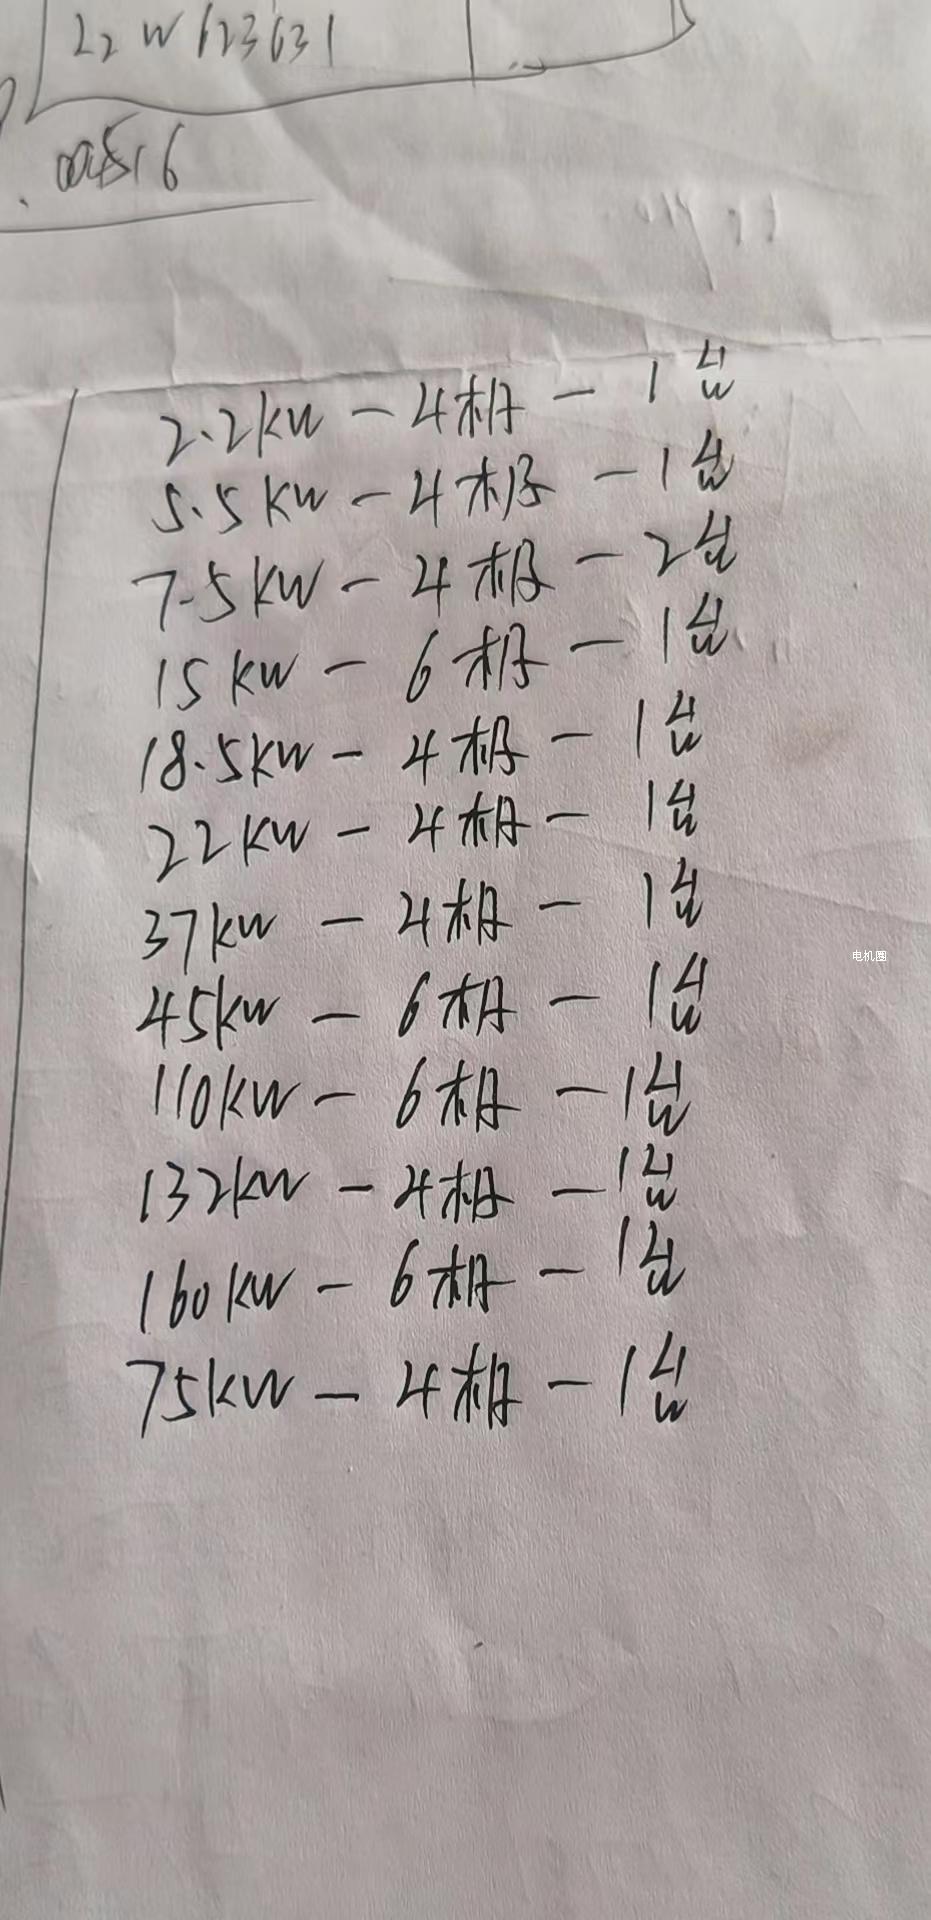 L2W623631
2.2kw-4相-1台
5.5kw-4相-1台
7.5kw-4相-2台
15kw-6相-1台
18.5kw-4相-1台
22kw-4相-1台
37kw-4相-1台
电机圈
45kw-6相-1台
110kw-6相-1台
132kw-4相-1台
160kw-6相-1台
75kw-4相-1台